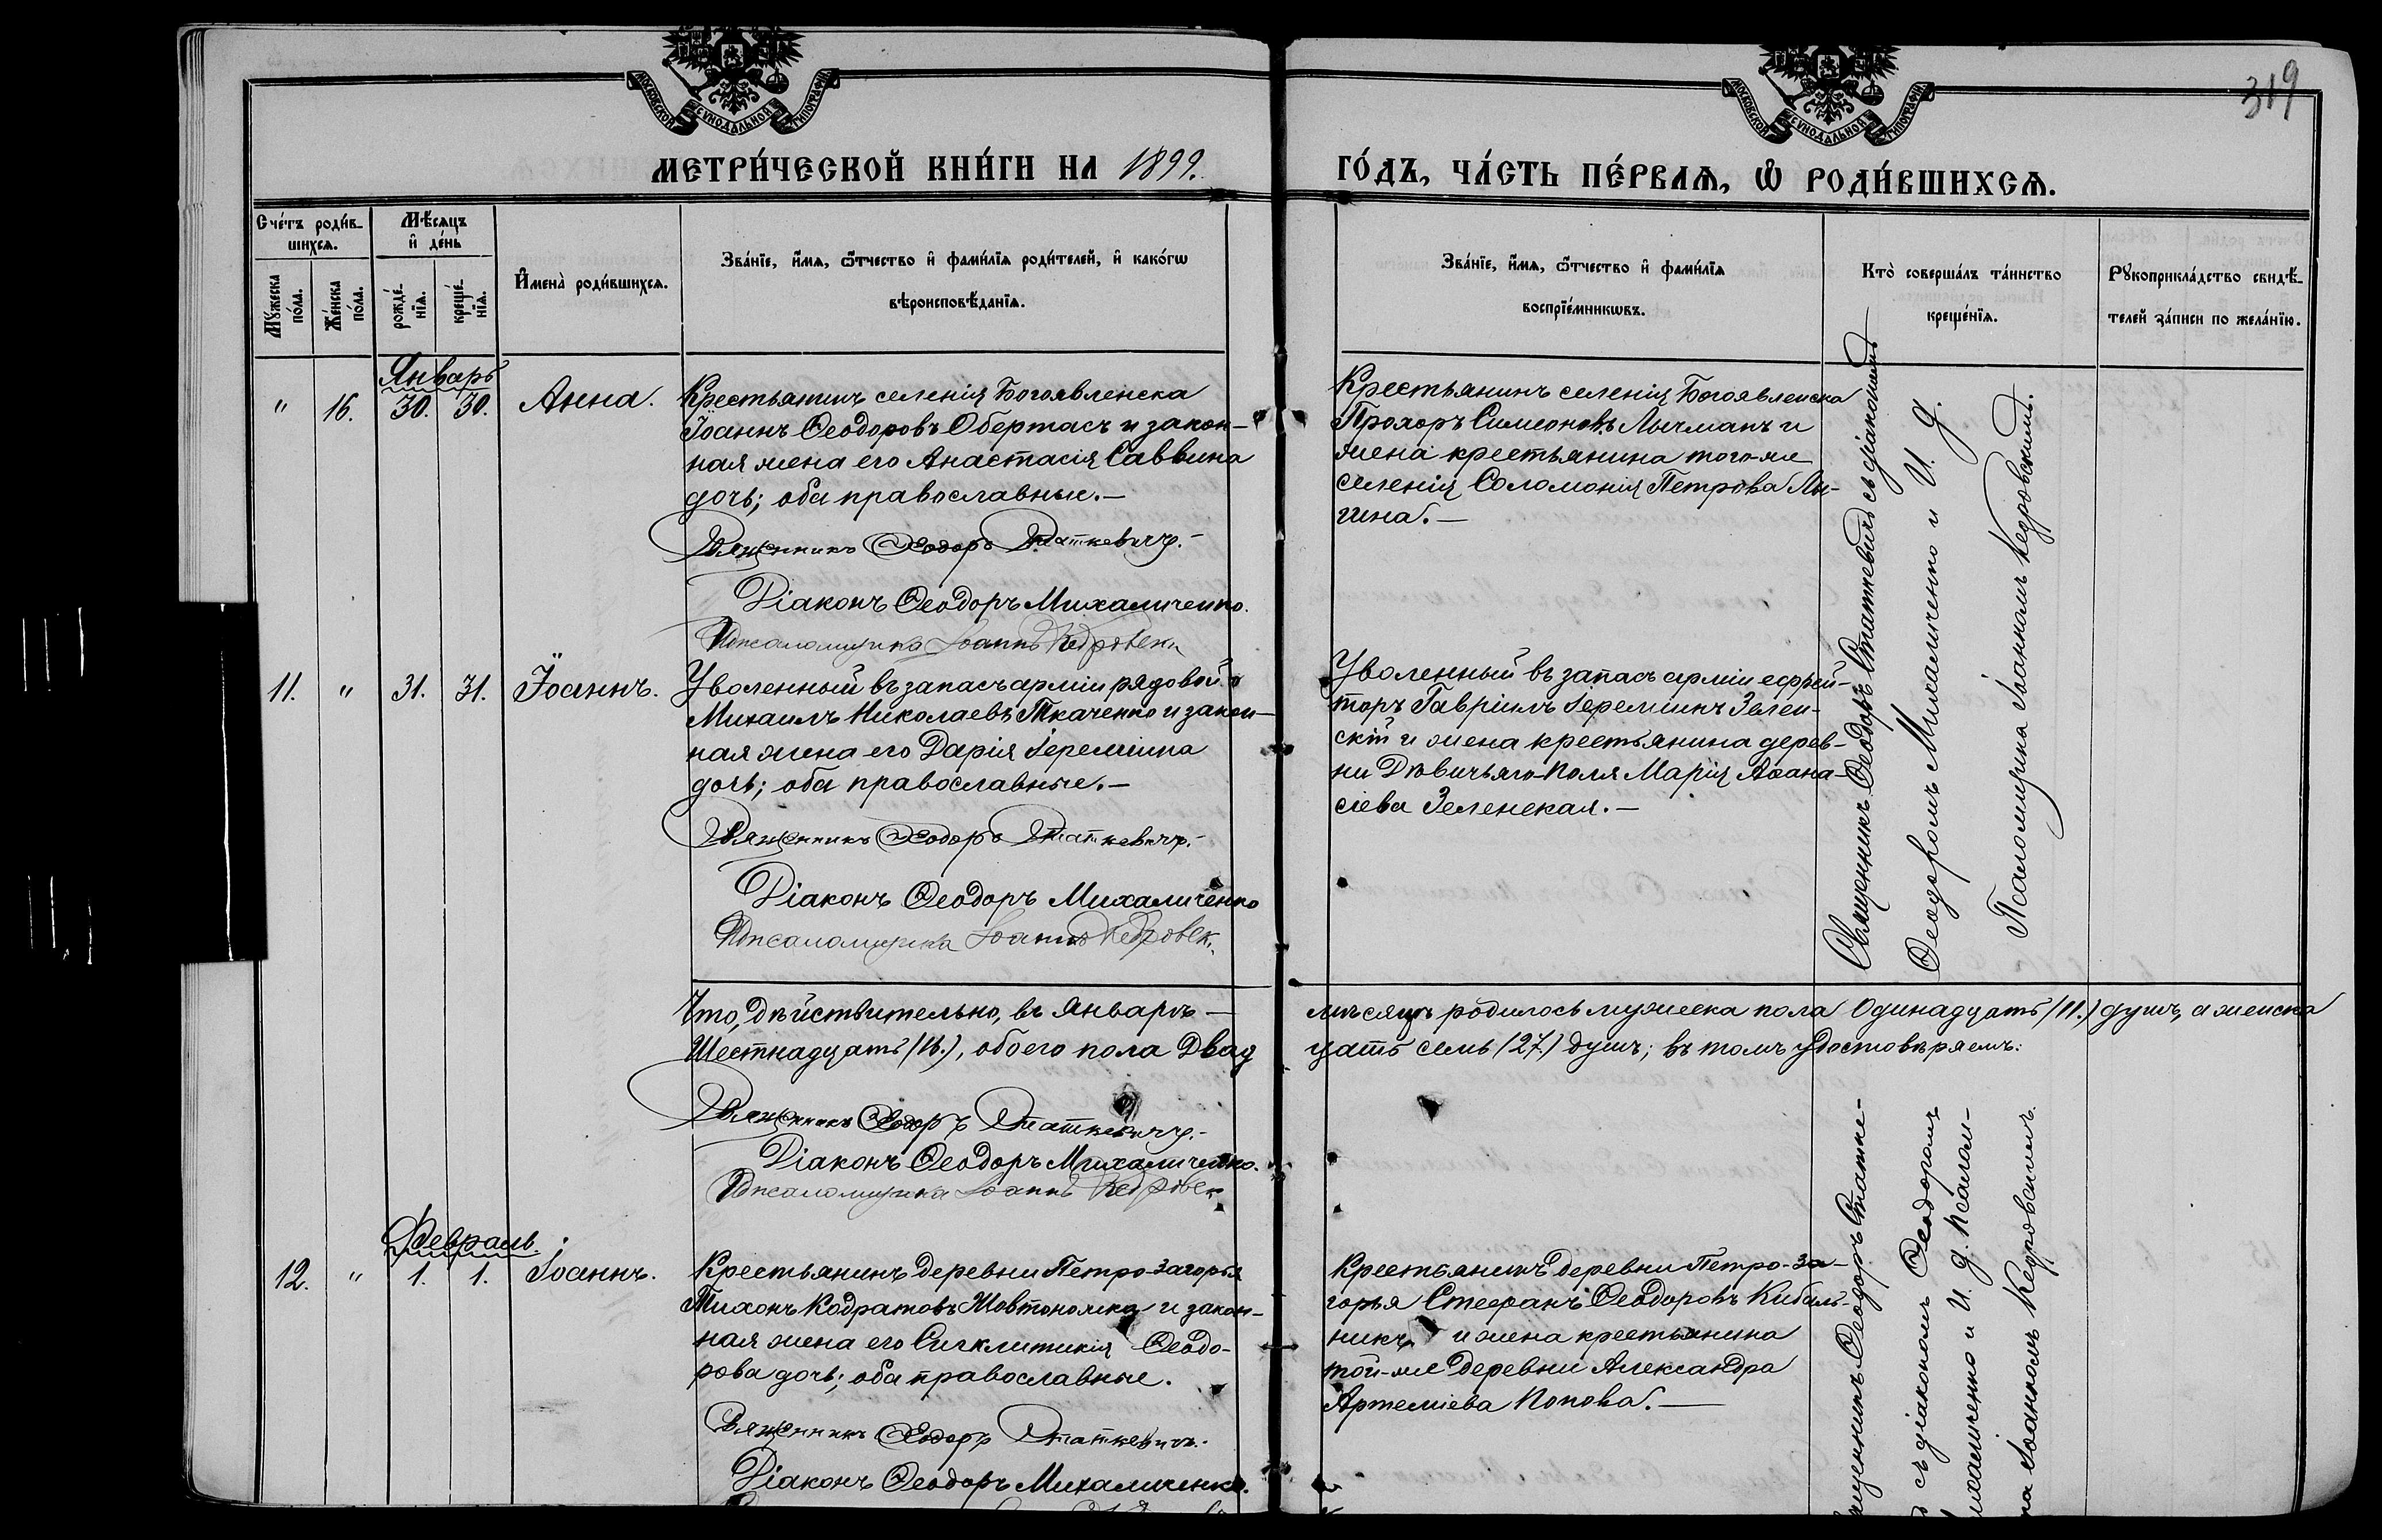 МОСКОВСКОЙ СѴНОДАЛЬНОЙ ТИПОГРАФІИ
МОСКОВСКОЙ СѴНОДАЛЬНОЙ ТИПОГРАФІИ
319
МЕТРИ́ЧЕСКОЙ КНИ́ГИ НА 1899.
ГО́ДЪ, ЧА́СТЬ ПЕ́РВАѦ, Ѽ РОДИ́ВШИХСѦ.
Сче́тъ роди́в-
шихсѧ.
Мѣ́сѧцъ
и҆ де́нь
Мꙋ́жеска
по́ла.
Же́нска
по́ла.
рожде́-
нїѧ.
креще́-
нїѧ.
И҆мена̀ роди́вшихсѧ.
Зва́нїе, и҆́мѧ, ѻ҆́тчество и҆ фами́лїѧ роди́телей, и҆ како́гѡ
вѣроисповѣ́данїѧ.
Зва́нїе, и҆́мѧ, ѻ҆́тчество и҆ фами́лїѧ
воспрїе́мникѡвъ.
Кто̀ соверша́лъ та́инство
креще́нїѧ.
Рꙋкоприкла́дство свидѣ́-
телей за́писи по жела́нїю.
Январь
" 16. 30. 30. Анна.
Крестьянинъ селенія Богоявленска
Іоаннъ Ѳеодоровъ Обертасъ и закон-
ная жена его Анастасія Саввина
дочь; оба православные.—
Священникъ Ѳеодоръ Статкевичъ.-
Діаконъ Ѳеодоръ Михаличенко.
Псаломщикъ Іоаннъ Кедровск.
Крестьянинъ селенія Богоявленска
Прохоръ Симеоновъ Лычманъ и
жена крестьянина того-же
селенія Соломонія Петрова Лы-
гина.—
Священникъ Ѳеодоръ Статкевичъ съ діакономъ
Ѳеодоромъ Михаличенко и И. д.
Псаломщика Іоанномъ Кедровскимъ.
11. " 31. 31. Іоаннъ.
Уволенный въ запасъ арміи рядовой
Михаилъ Николаевъ Ткаченко и закон-
ная жена его Дарія Іереміина
дочь; оба православные.—
Священникъ Ѳеодоръ Статкевичъ.-
Діаконъ Ѳеодоръ Михаличенко
Псаломщикъ Іоаннъ Кедровск.
Уволенный въ запасъ арміи ефрей-
торъ Гавріилъ Іереміинъ Зелен-
скій и жена крестьянина дерев-
ни Дѣвичьяго-Поля Марія Аѳана-
сіева Зеленская.—
Что, дѣйствительно, въ Январѣ— мѣсяцѣ родилось мужеска пола Одинадцать (11.) душъ, а женска
Шестнадцать (16.), обоего пола Двад цать семь (27.) душъ; въ томъ удостовѣряемъ:
Священникъ Ѳеодоръ Статкевичъ.-
Діаконъ Ѳеодоръ Михаличенко.
Псаломщикъ Іоаннъ Кедровск
Февраль.
12. " 1. 1. Іоаннъ.
Крестьянинъ деревни Петро-Загорья
Тихонъ Кодратовъ Жовтоножка и закон-
ная жена его Сигклитикія Ѳеодо-
рова дочь; оба православные.
Священникъ Ѳеодоръ Статкевичъ.-
Діаконъ Ѳеодоръ Михаличенко.
Крестьянинъ деревни Петро-За-
горья Стефанъ Ѳеодоровъ Кибаль-
никъ и жена крестьянина
той-же деревни Александра
Артеміева Попова.—
Ѳеодоръ Статке-
съ діакономъ Ѳеодоромъ
Михаличенко и И. д. Псалом-
Іоанномъ Кедровскимъ.